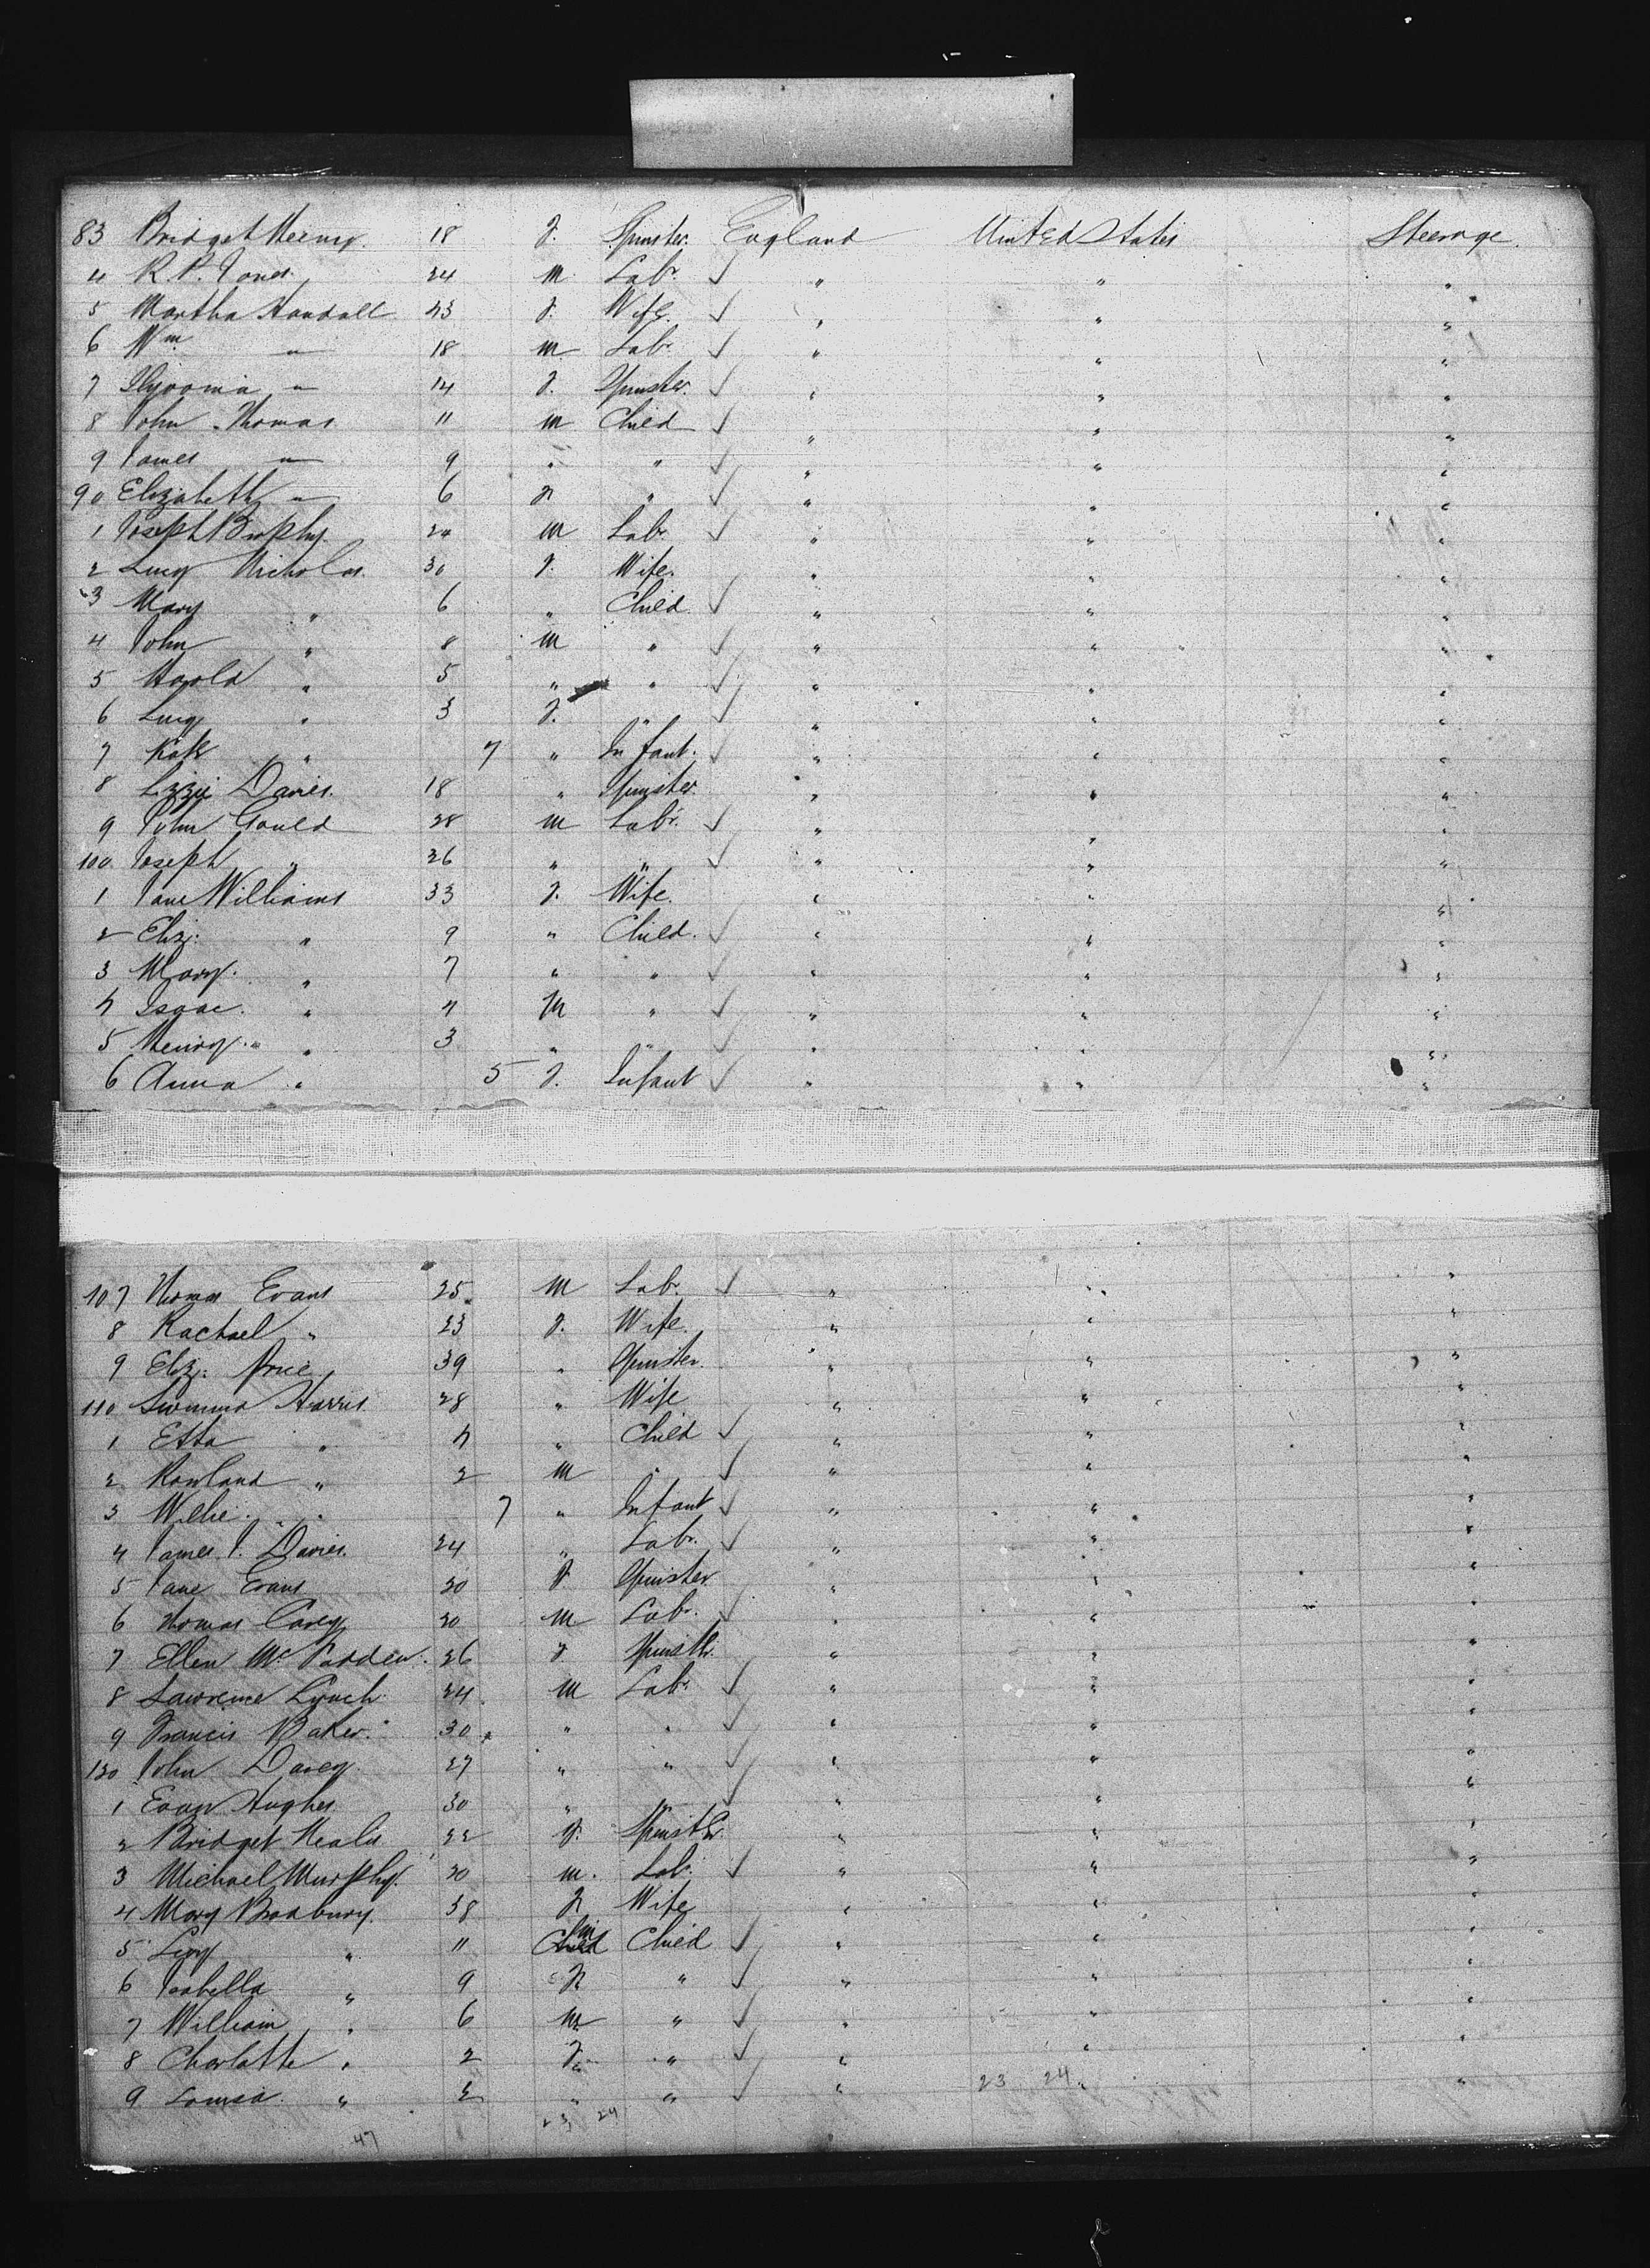 83 Bridget 18 F. Spinster. England United States Steerage.
4 R. P. Jones 24 M. Labr. " " "
5 Martha Randall 43 F. Wife. " " "
6 Wm " 18 M Labr. " " "
7 " 14 F. Spinster. " " "
8 John Thomas 11 M Child " " "
9 James " 9 " " " " "
90 Elizabeth " 6 F " " " "
1 Joseph Brophy. 24 M Labr. " " "
2 Lucy Nicholas 30 F. Wife. " " "
3 Mary " 6 " Child " " "
4 John " 8 M " " " "
5 Harold " 5 " " " " "
6 Lucy " 3 F. " " " "
7 Kate " 7 " Infant. " " "
8 Lizzie Davies. 18 " Spinster. " " "
9 John Gould 28 M Labr. " " "
100 Joseph " 26 " " " " "
1 Jane Williams 33 F. Wife. " " "
2 Eliz. " 9 " Child. " " "
3 Mary. " 7 " " " " "
4 Isaac. " 4 M " " " "
5 Henry. " 3 " " " " "
6 Anna " 5 F. Infant " " "
107 Thomas Evans 25 M Labr. " " "
8 Rachael " 23 F. Wife. " " "
9 Eliz. Price 39 " Spinster. " " "
110 Harris 28 " Wife " " "
1 Etta " 4 " Child " " "
2 Rowland " 2 M " " " "
3 Willie. " 7 " Infant " " "
4 James J. Davies. 24 " Labr. " " "
5 Jane Evans 20 F Spinster " " "
6 Thomas Carey 20 M Labr. " " "
7 Ellen McPadden. 26 F Spinstr. " " "
8 Lawrence Lynch 24 M Labr " " "
9 Francis Baker. 30 " " " " "
120 John Davey. 27 " " " " "
1 Evan Hughes. 30 " " " " "
2 Bridget 22 F. Spinstr. " " "
3 Michael Murphy. 20 M. Labr. " " "
4 Mary Bradbury. 38 F Wife " " "
5 " 11 M Child " " "
6 Isabella " 9 F " " " "
7 William " 6 M " " " "
8 Charlotte " 2 F " " " "
9 Louisa " 2 " " " 23 24 " "
47 23 24